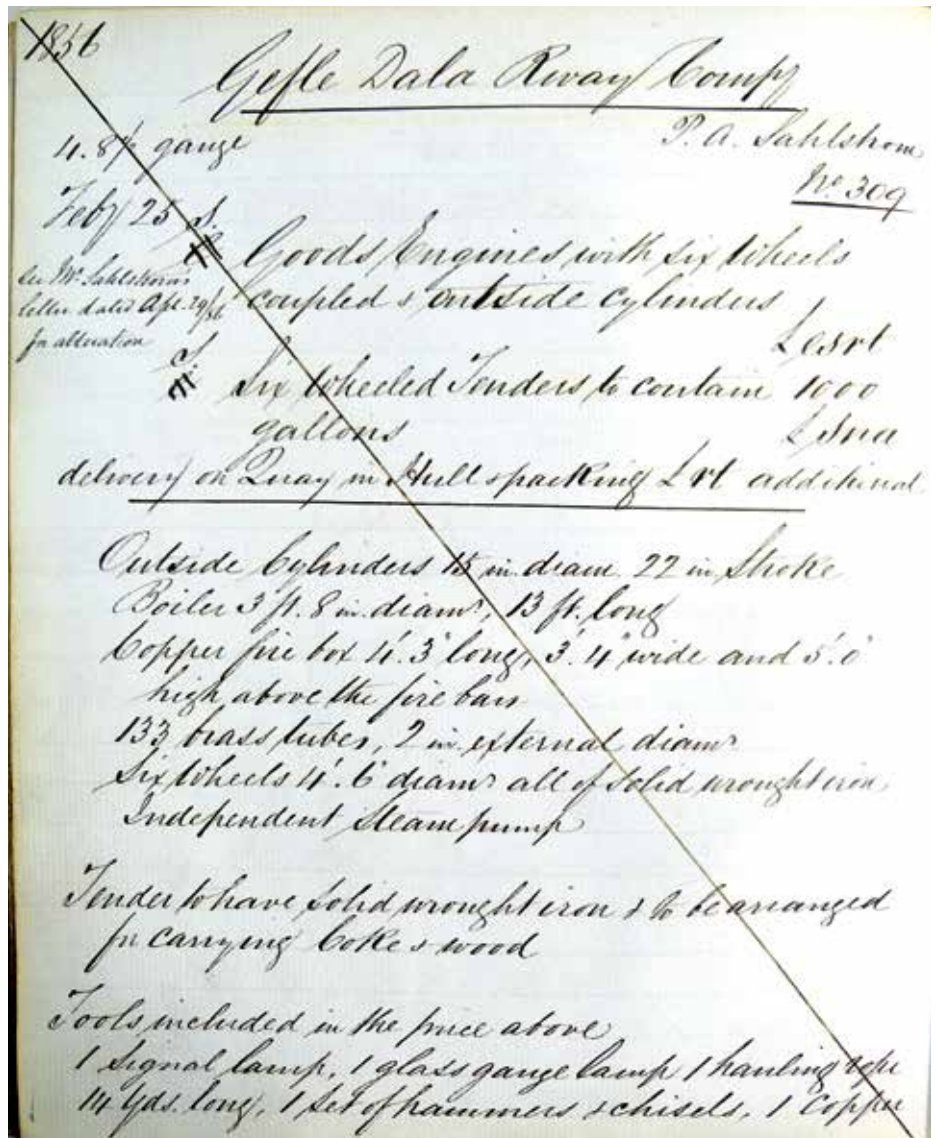 1856
Gefle Dala Rway Compy
4.8½ gauge
P. A. Sahlstrom
No. 309
Feby 25
Goods Engines with six Wheels
coupled & outside cylinders
See Mr. Sahlstrom's
letter dated Apl. 29/56
for alteration
£ esrt
Six Wheeled Tenders to contain 1000
gallons
delivery on Quay in Hull & packing £ rt additional
Outside Cylinders 15 in. diam. 22 in Stroke
Boiler 3 ft. 8 in. diamr, 13 ft. long
Copper fire box 4'. 3" long, 3'. 4" wide and 5'. 0"
high above the fire bars
133 brass tubes, 2 in. external diamr
Six Wheels 4'. 6" diamr all of solid wrought iron
Independent Steam pump
Tender to have solid wrought iron & to be arranged
for carrying Coke & wood
Tools included in the price above
1 Signal lamp, 1 glass gauge lamp 1 hauling rope
14 yds. long, 1 Set of hammers & chisels, 1 Copper